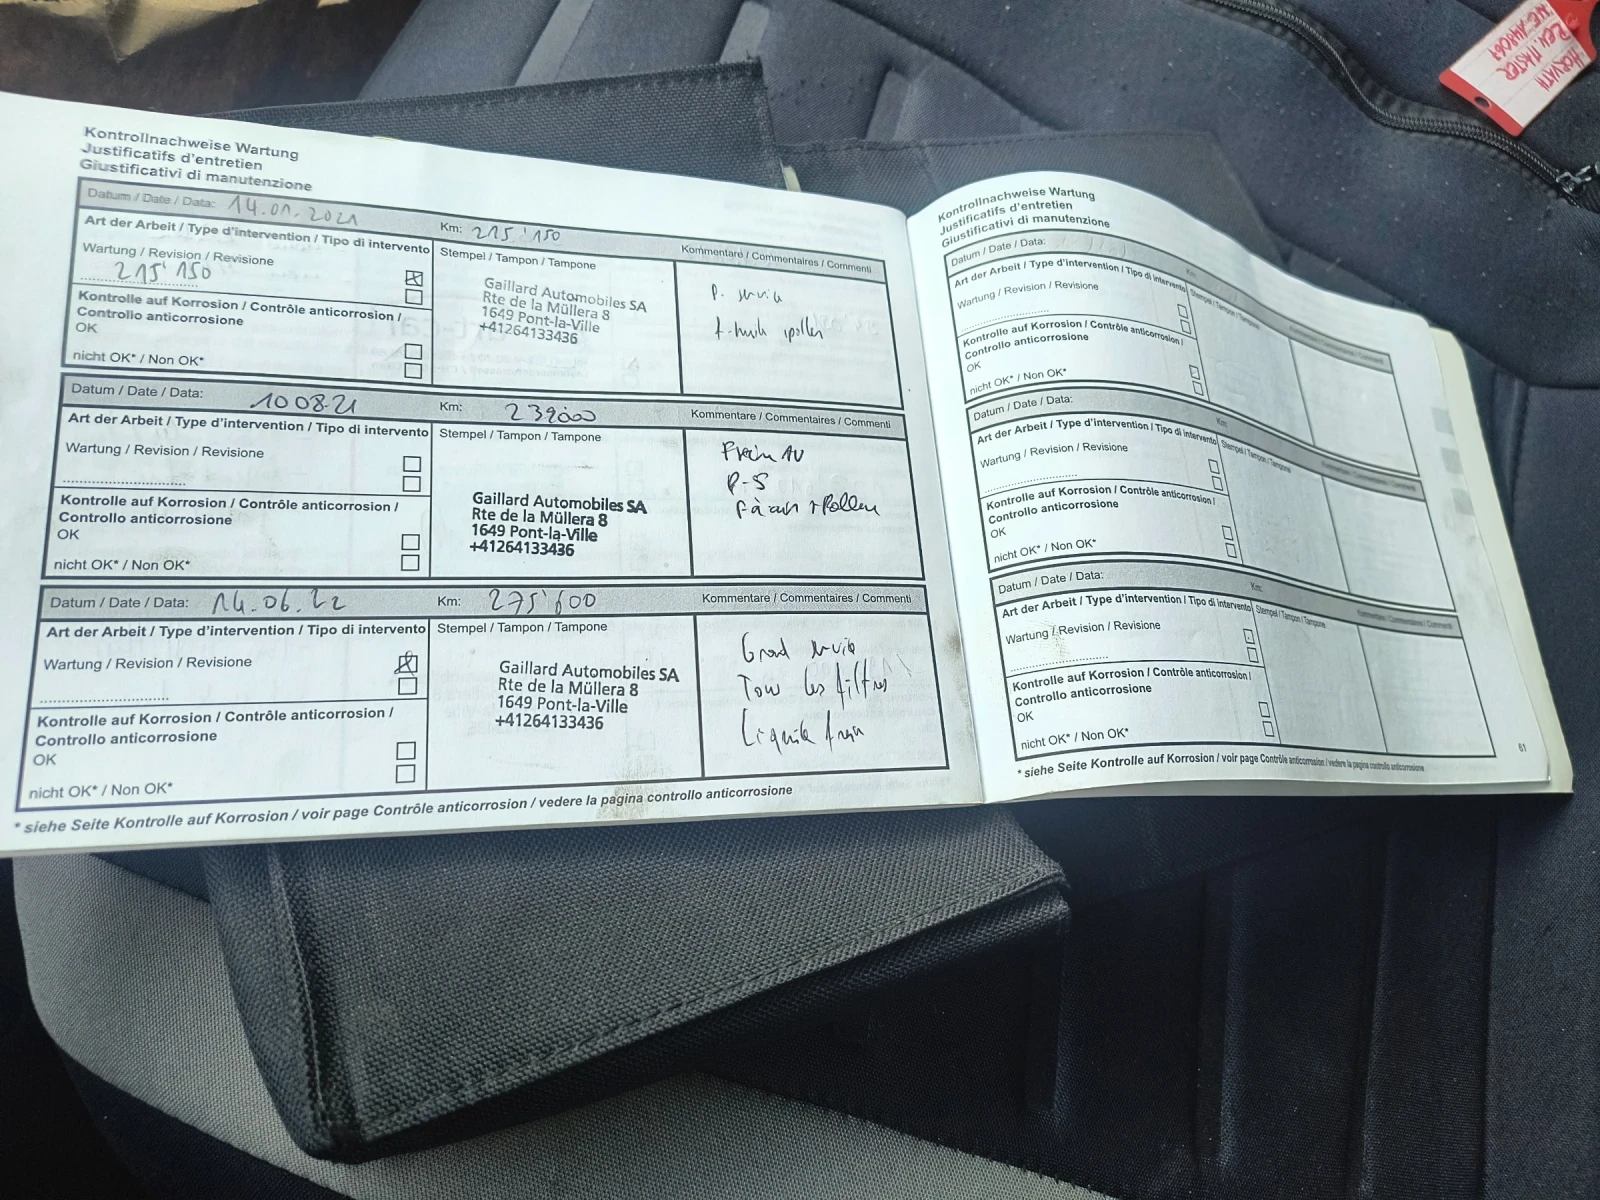 Kontrollnachweise Wartung
Justificatifs d'entretien
Giustificativi di manutenzione
Datum / Date / Data: 14.01.2021
Km: 215'150
Art der Arbeit / Type d'intervention / Tipo di intervento
Wartung / Revision / Revisione
215'150
Kontrolle auf Korrosion / Contrôle anticorrosion /
Controllo anticorrosione
OK
nicht OK* / Non OK*
Stempel / Tampon / Tampone
Gaillard Automobiles SA
Rte de la Müllera 8
1649 Pont-la-Ville
+41264133436
Kommentare / Commentaires / Commenti
P. service
Datum / Date / Data: 10 08 21
Km: 239000
Art der Arbeit / Type d'intervention / Tipo di intervento
Wartung / Revision / Revisione
Kontrolle auf Korrosion / Contrôle anticorrosion /
Controllo anticorrosione
OK
nicht OK* / Non OK*
Stempel / Tampon / Tampone
Gaillard Automobiles SA
Rte de la Müllera 8
1649 Pont-la-Ville
+41264133436
Kommentare / Commentaires / Commenti
Frein AV
P-S
Datum / Date / Data: 14.06.22
Km: 275'600
Art der Arbeit / Type d'intervention / Tipo di intervento
Wartung / Revision / Revisione
Kontrolle auf Korrosion / Contrôle anticorrosion /
Controllo anticorrosione
OK
nicht OK* / Non OK*
Stempel / Tampon / Tampone
Gaillard Automobiles SA
Rte de la Müllera 8
1649 Pont-la-Ville
+41264133436
Kommentare / Commentaires / Commenti
Grand service
Tous les filtres
Liquide frein
* siehe Seite Kontrolle auf Korrosion / voir page Contrôle anticorrosion / vedere la pagina controllo anticorrosione
Kontrollnachweise Wartung
Justificatifs d'entretien
Giustificativi di manutenzione
Datum / Date / Data:
Km:
Art der Arbeit / Type d'intervention / Tipo di intervento
Wartung / Revision / Revisione
Kontrolle auf Korrosion / Contrôle anticorrosion /
Controllo anticorrosione
OK
nicht OK* / Non OK*
Stempel / Tampon / Tampone
Kommentare / Commentaires / Commenti
Datum / Date / Data:
Km:
Art der Arbeit / Type d'intervention / Tipo di intervento
Wartung / Revision / Revisione
Kontrolle auf Korrosion / Contrôle anticorrosion /
Controllo anticorrosione
OK
nicht OK* / Non OK*
Stempel / Tampon / Tampone
Kommentare / Commentaires / Commenti
Datum / Date / Data:
Km:
Art der Arbeit / Type d'intervention / Tipo di intervento
Wartung / Revision / Revisione
Kontrolle auf Korrosion / Contrôle anticorrosion /
Controllo anticorrosione
OK
nicht OK* / Non OK*
Stempel / Tampon / Tampone
Kommentare / Commentaires / Commenti
* siehe Seite Kontrolle auf Korrosion / voir page Contrôle anticorrosion / vedere la pagina controllo anticorrosione
61
HORVATH
REN. MASTER